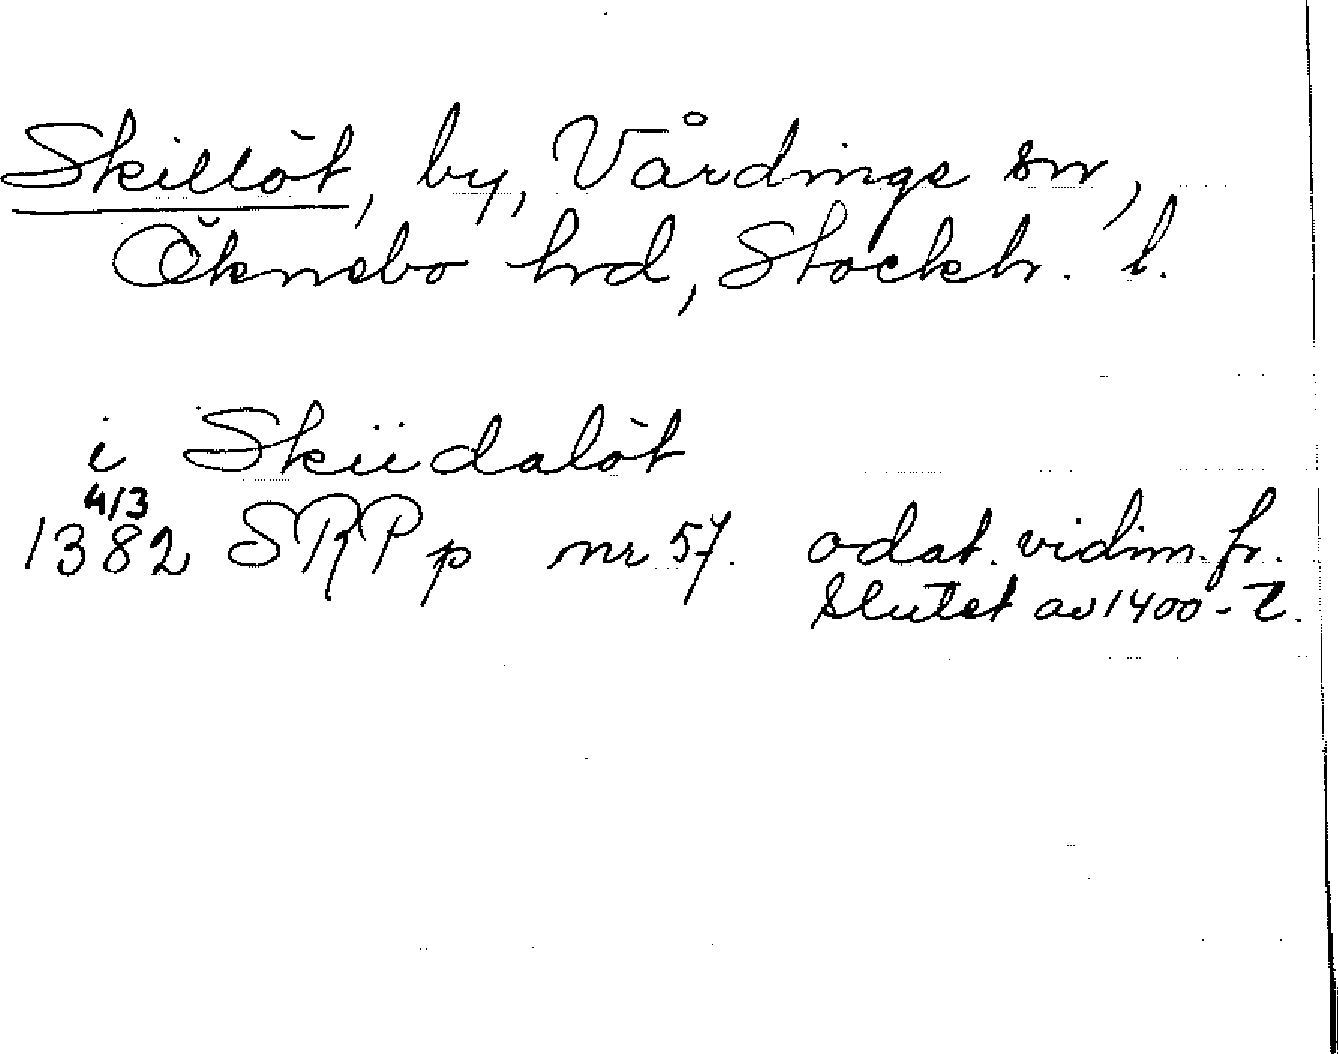 Skillöt, by, Vårdinge sn,
Öknebo hrd, Stockh. l.
i Skiidalöt
4/3
1382 SRPp nr 57. odat. vidim. fr.
slutet av 1400-t.